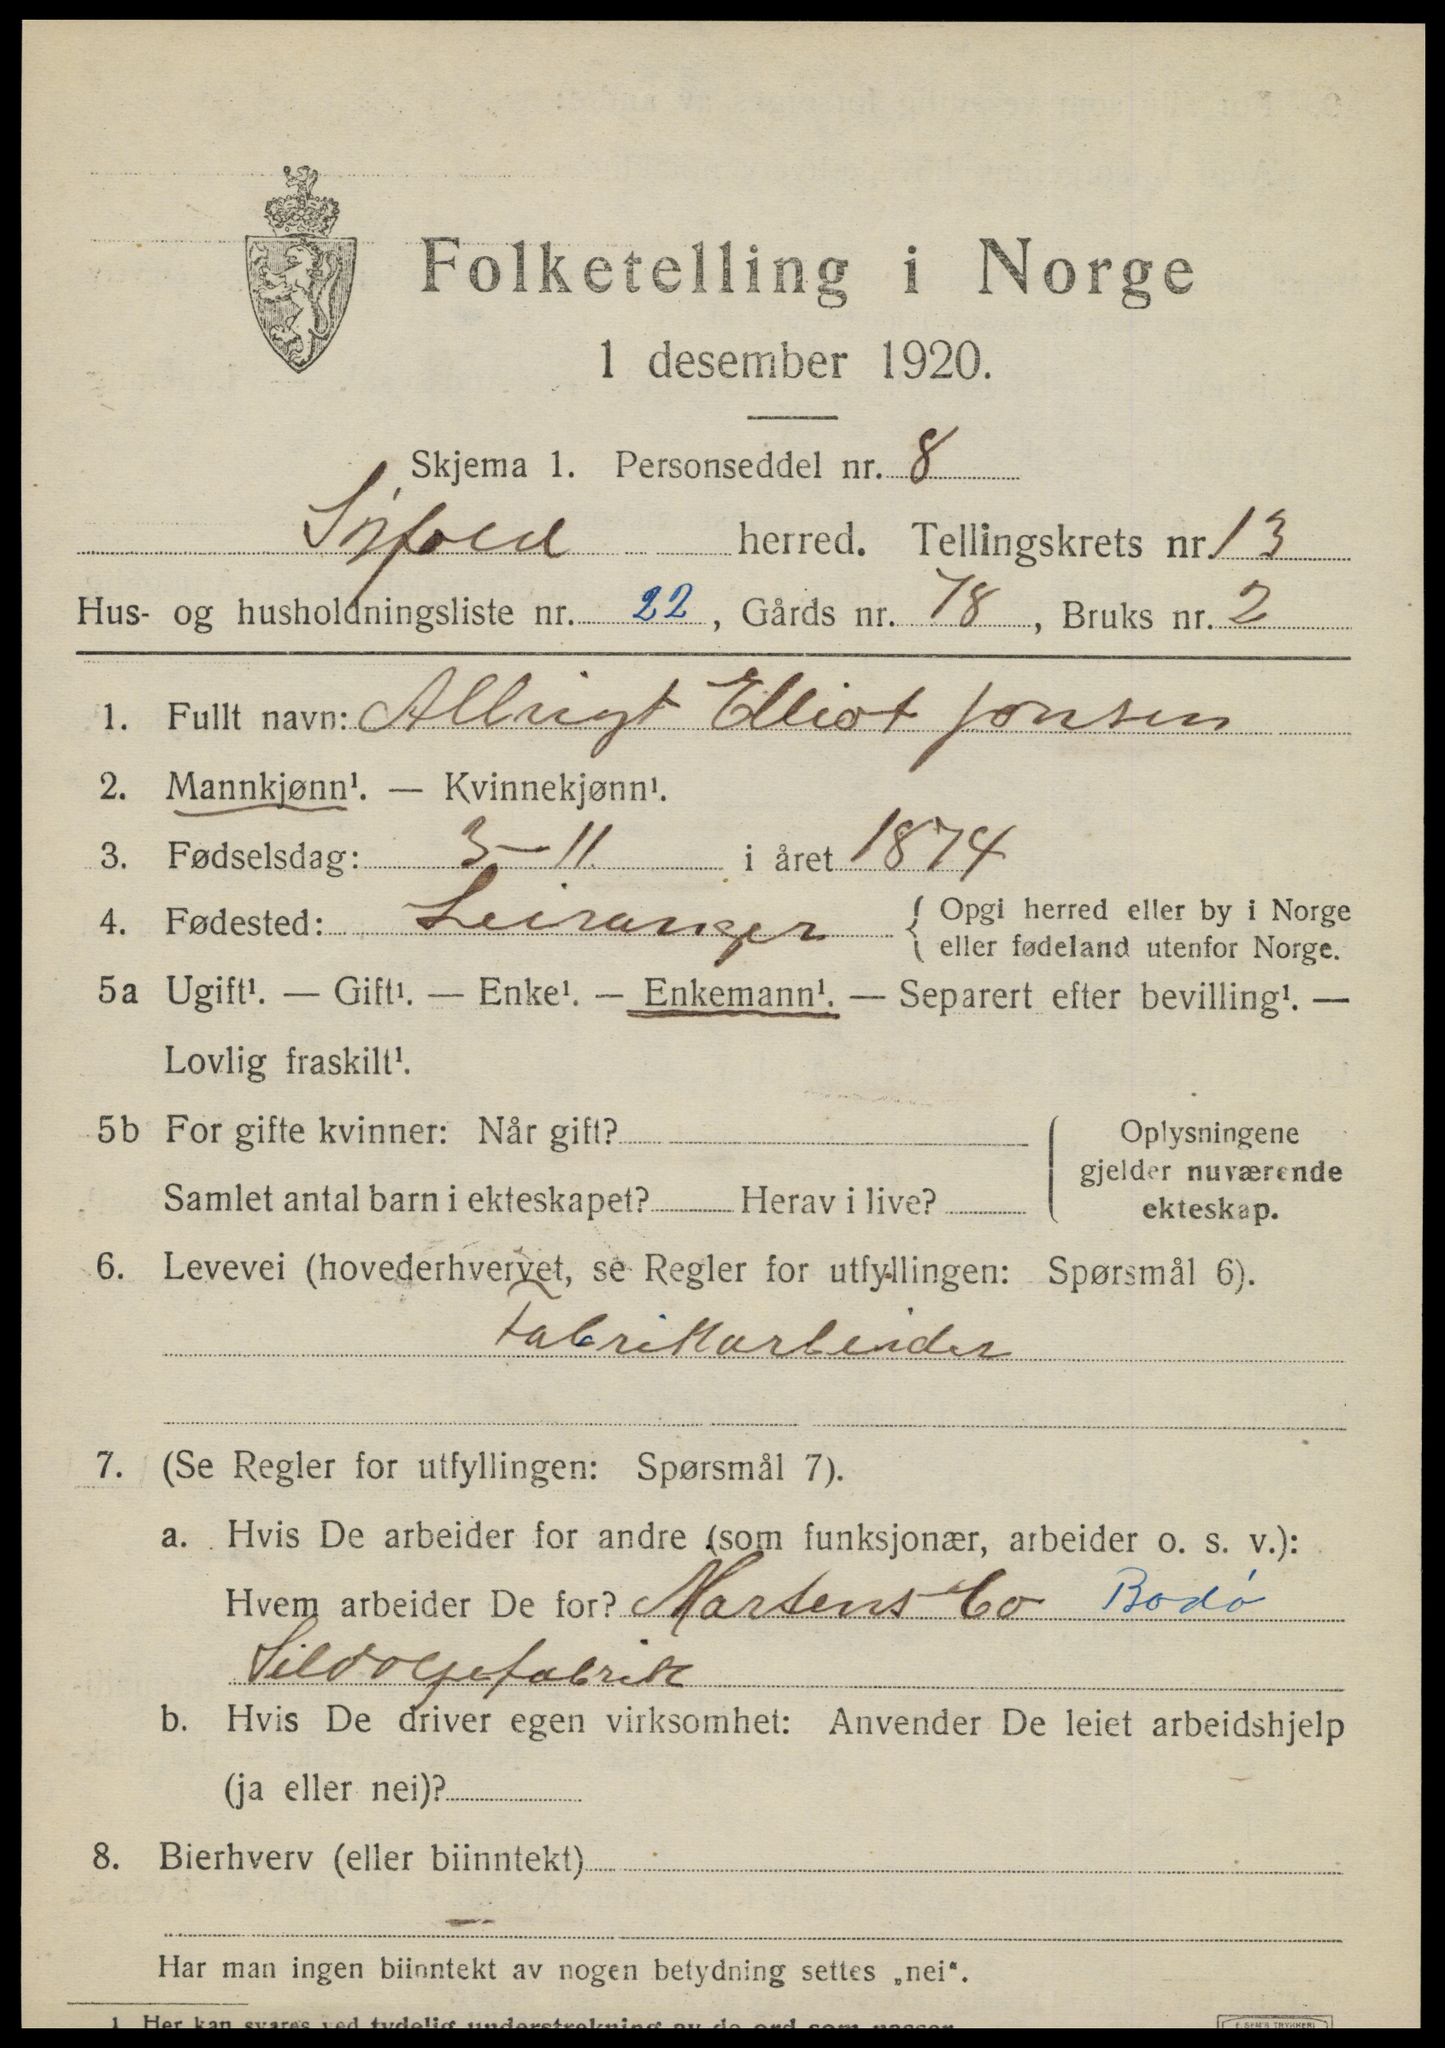 Folketelling i Norge
1 desember 1920.
Skjema 1. Personseddel nr. 8
Sørfold herred. Tellingskrets nr. 13
Hus- og husholdningsliste nr. 22, Gårds nr. 78, Bruks nr. 2
1. Fullt navn: Albrigt Elliot Jonsen
2. Mannkjønn¹. — Kvinnekjønn¹.
3. Fødselsdag: 3-11 i året 1874
4. Fødested: Leiranger { Opgi herred eller by i Norge
eller fødeland utenfor Norge.
5a Ugift¹. — Gift¹. — Enke¹. — Enkemann¹. — Separert efter bevilling¹. —
Lovlig fraskilt¹.
5b For gifte kvinner: Når gift?
Samlet antal barn i ekteskapet? Herav i live?
Oplysningene
gjelder nuværende
ekteskap.
6. Levevei (hovederhvervet, se Regler for utfyllingen: Spørsmål 6).
Fabrikkarbeider
7. (Se Regler for utfyllingen: Spørsmål 7).
a. Hvis De arbeider for andre (som funksjonær, arbeider o. s. v.):
Hvem arbeider De for? Martens Co Bodø
Sildoljefabrik
b. Hvis De driver egen virksomhet: Anvender De leiet arbeidshjelp
(ja eller nei)?
8. Bierhverv (eller biinntekt)
—
Har man ingen biinntekt av nogen betydning settes „nei“.
1 Her kan svares ved tydelig understrekning av de ord som passer.